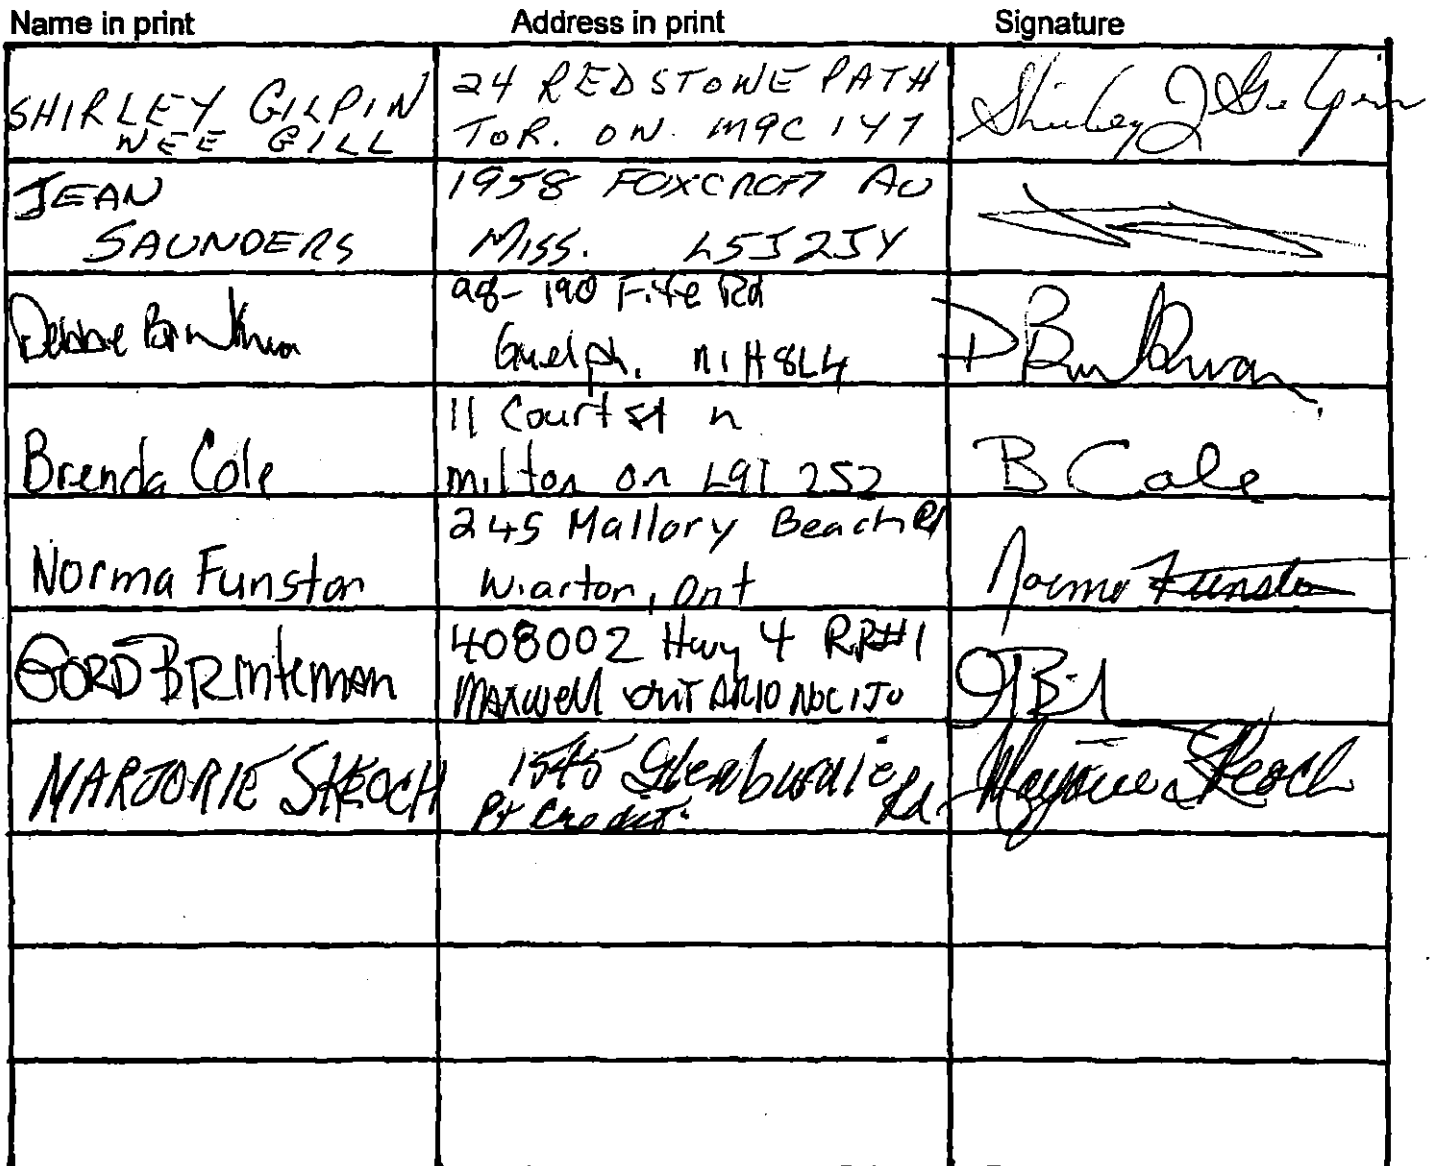 Name in print Address in print Signature
SHIRLEY GILPIN
NEE GILL
24 REDSTONE PATH
TOR. ON. M9C 1Y7
Shirley J Gilpin
JEAN
SAUNDERS
1958 FOXCROFT AV
MISS. L5J2JY
Debbie
98-190 Fife Rd
Guelph, N1H8L4
D
Brenda Cole
11 Court st n
milton on L9T 2S2
B Cole
Norma Funston
245 Mallory Beach Rd
Wiarton, Ont
Norma Funston
GORD BRinteman
408002 Hwy 4 RR#1
Maxwell ONTARIO N0C 1J0
MARJORIE SKEOCH
1545 Glenburnie
Rd.
Pt Credit.
Marjorie Skeoch